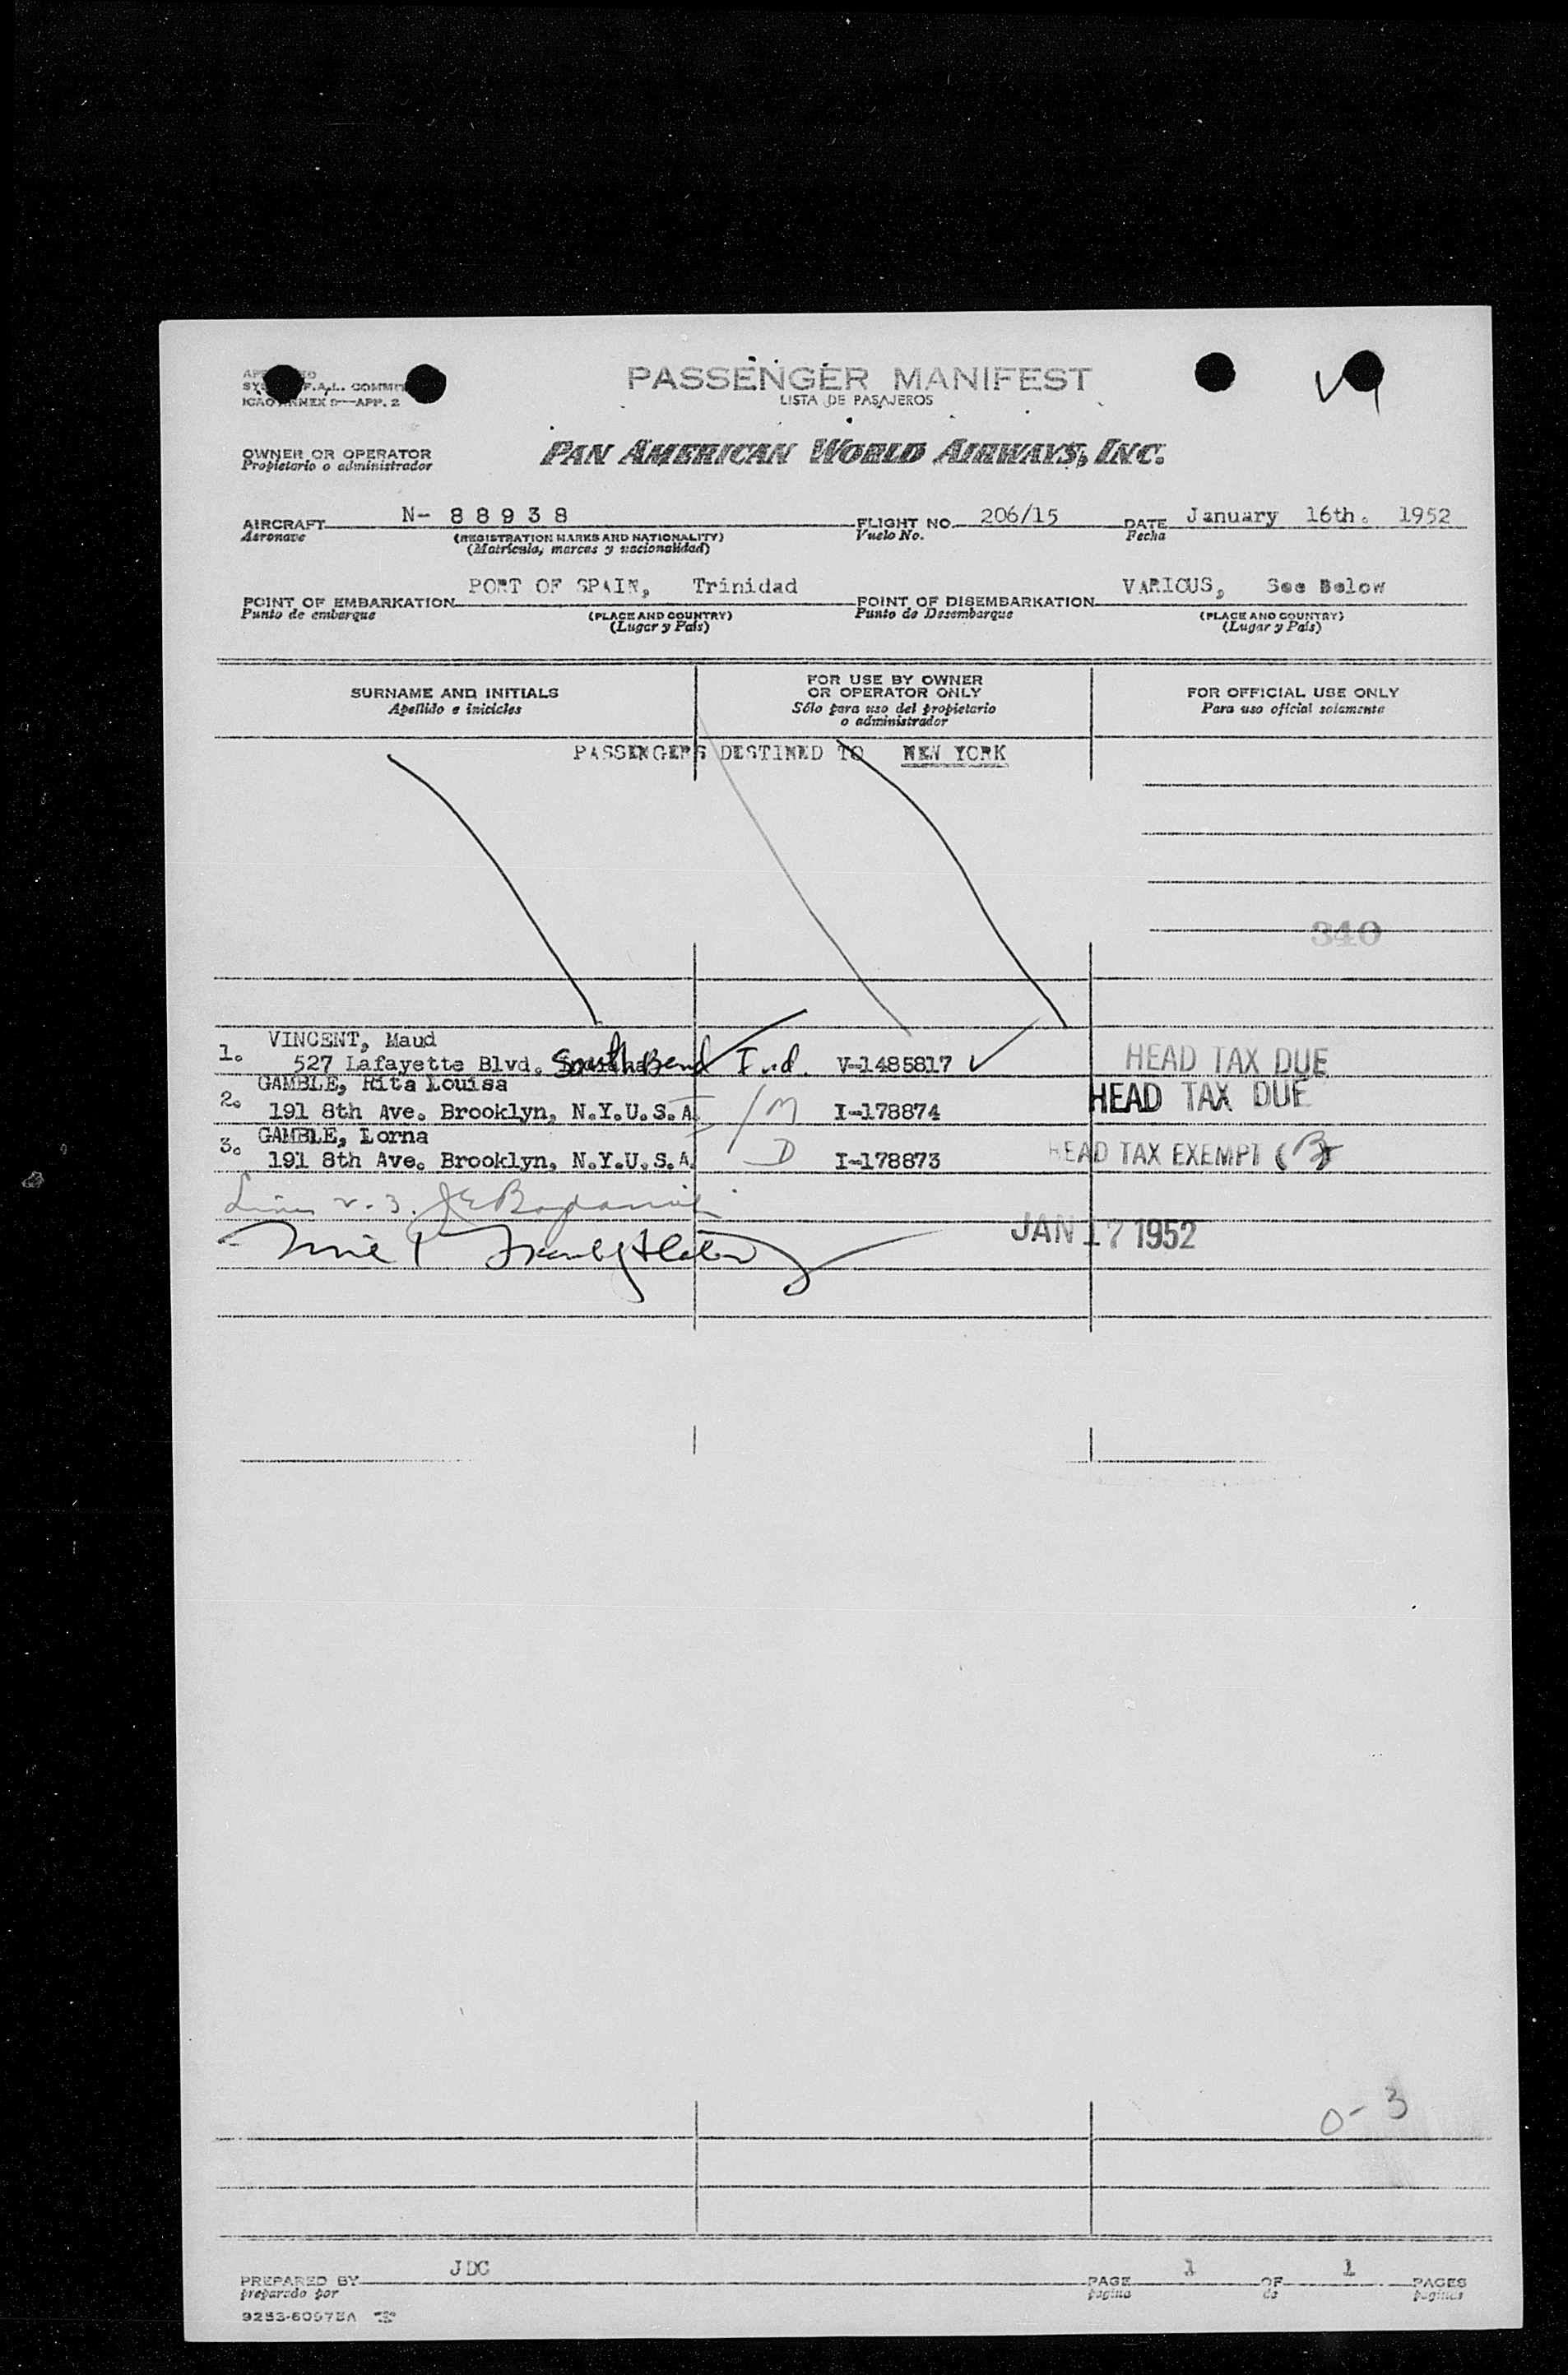 PASSENGER MANIFEST
LISTA DE PASAJEROS
F.A.L.
ICAO ANNEX 9—APP. 2
OWNER OR OPERATOR
Propietario o administrador
PAN AMERICAN WORLD AIRWAYS, INC.
AIRCRAFT N- 88938 FLIGHT NO. 206/15 DATE January 16th. 1952
Aeronave (REGISTRATION MARKS AND NATIONALITY) Vuelo No. Fecha
(Matrícula, marcas y nacionalidad)
POINT OF EMBARKATION PORT OF SPAIN, Trinidad POINT OF DISEMBARKATION VARIOUS, See Below
Punto de embarque (PLACE AND COUNTRY) Punto de Desembarque (PLACE AND COUNTRY)
(Lugar y País) (Lugar y País)
SURNAME AND INITIALS FOR USE BY OWNER OR OPERATOR ONLY FOR OFFICIAL USE ONLY
Apellido e iniciales Sólo para uso del propietario o administrador Para uso oficial solamente
PASSENGERS DESTINED TO NEW YORK
340
1. VINCENT, Maud
527 Lafayette Blvd. South Bend Ind. V-1485817 HEAD TAX DUE
2. GAMBLE, Rita Louisa
191 8th Ave. Brooklyn, N.Y.U.S.A. I M I-178874 HEAD TAX DUE
3. GAMBLE, Lorna
191 8th Ave. Brooklyn, N.Y.U.S.A. I D I-178873 HEAD TAX EXEMPT
Lines 2-3.
JAN 17 1952
0-3
PREPARED BY JDC PAGE 1 OF 1 PAGES
preparado por página de páginas